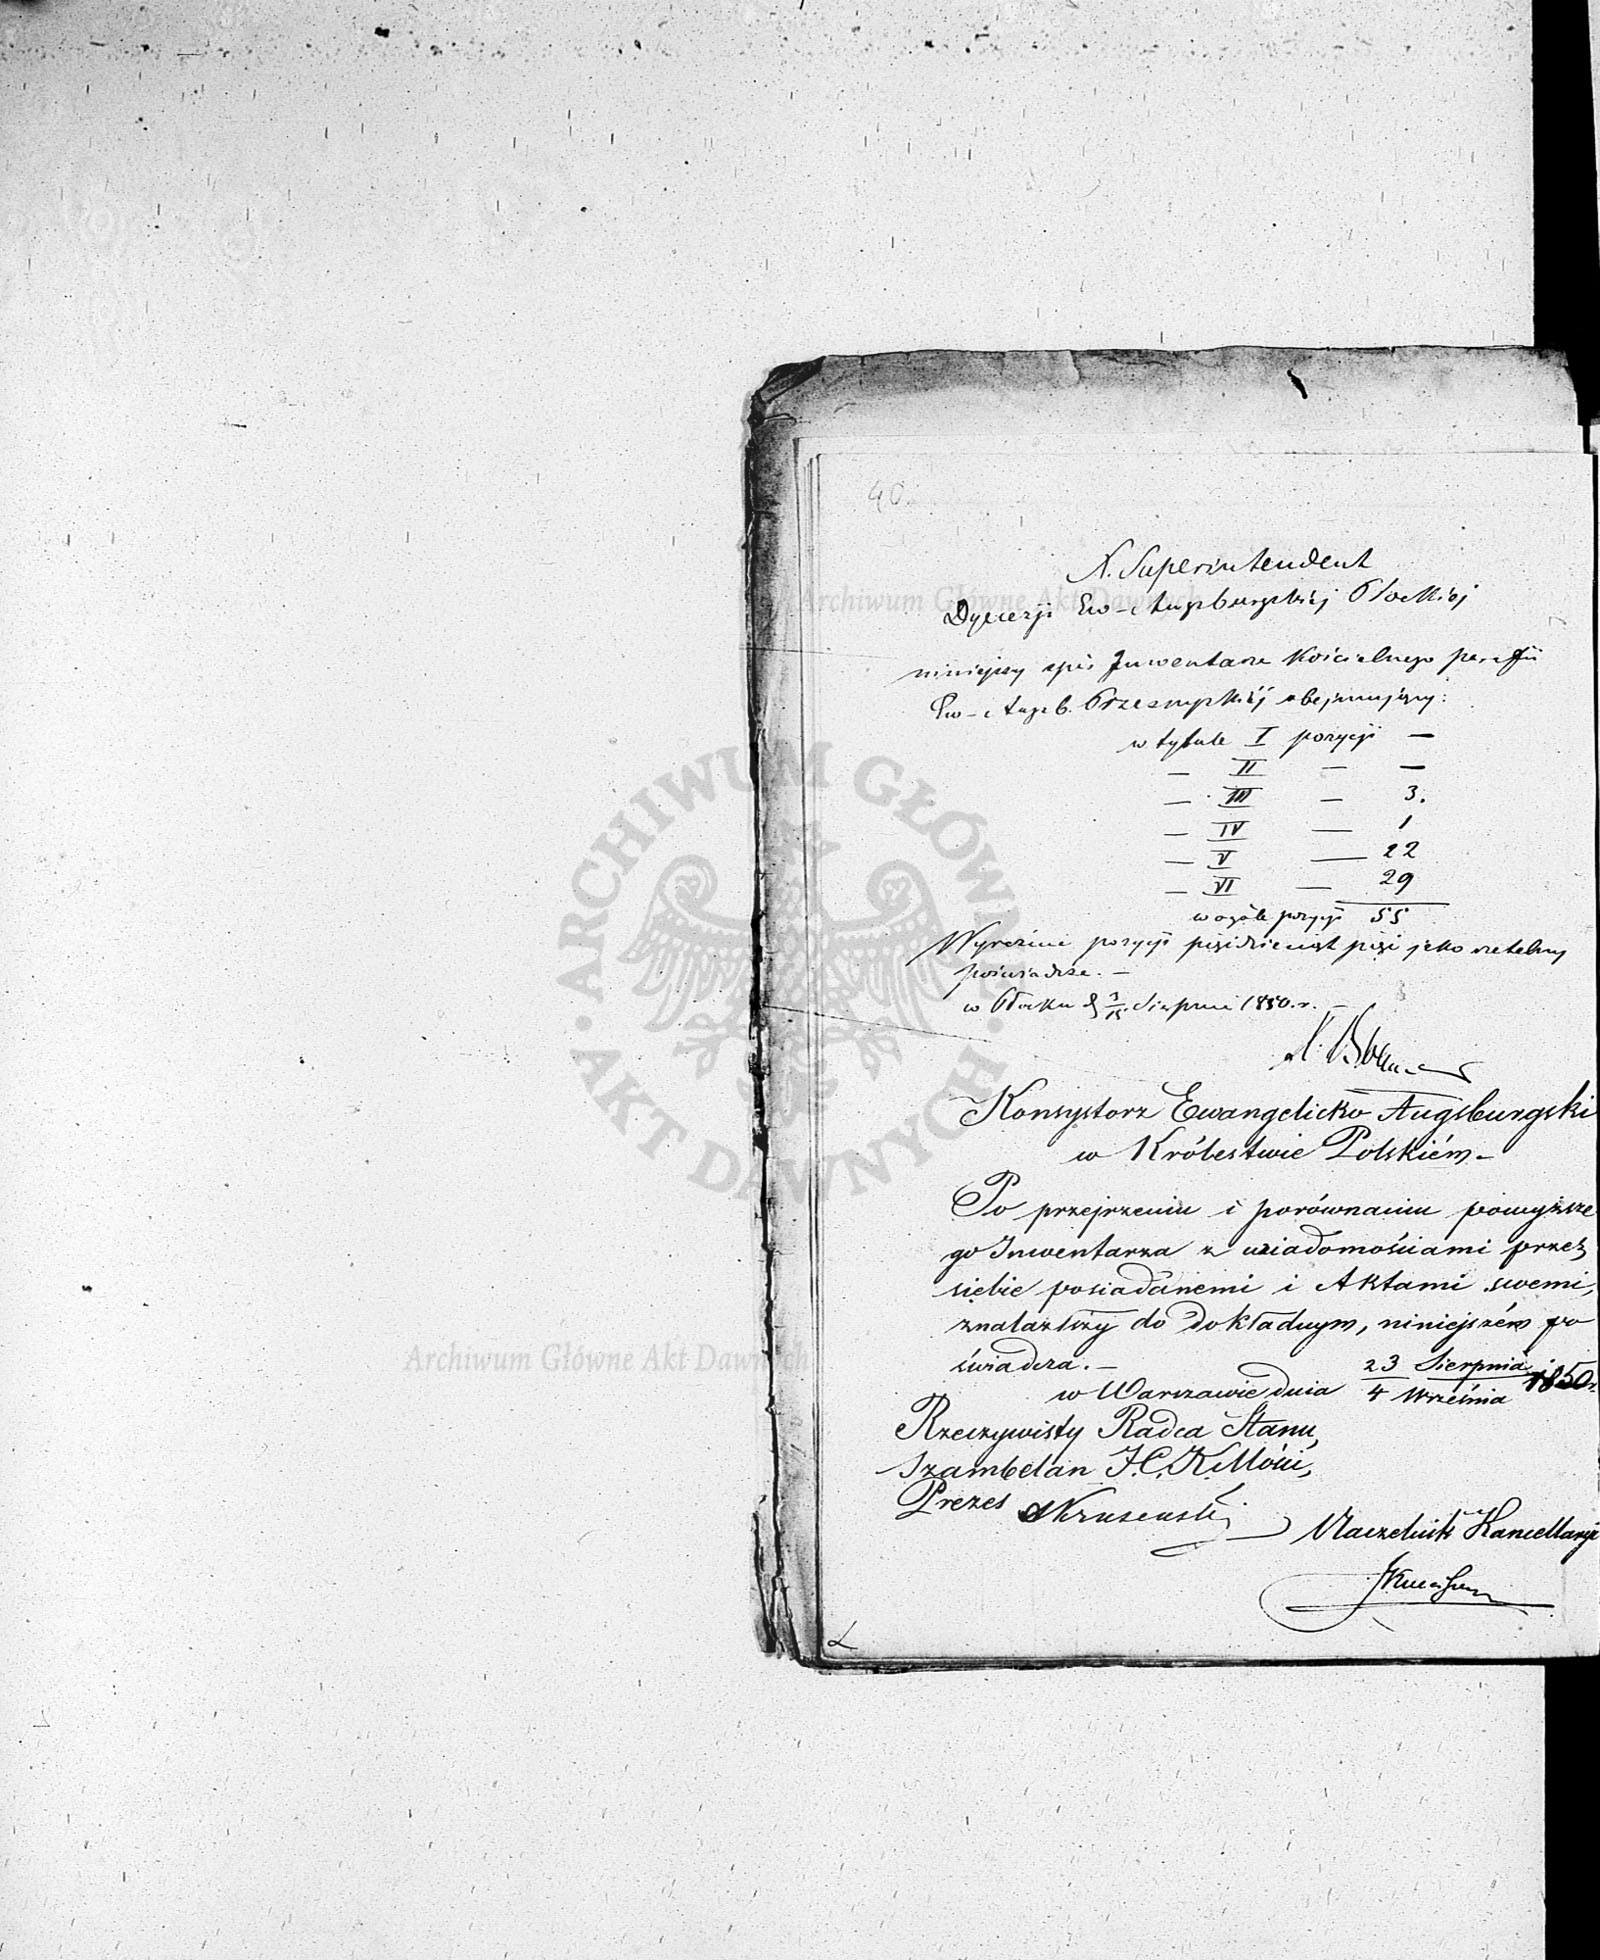 40.
N. Superintendent
Dyecezji Ew-Augsburgskiéj Płockiéj
niniejszy spis Inwentarza Kościelnego parafii
Ew-Augsb. Przasnyskiéj obejmujący:
w tytule I pozycji —
— II — —
— III — 3.
— IV — 1
— V — 22
— VI — 29
w ogóle pozycji 55
Wyraźnie pozycji pięćdziesiąt pięć jako rzetelny
poświadcza. —
w Płocku d. 3/15 Sierpnia 1850. r. —
Konsystorz Ewangelicko Augsburgski
w Królestwie Polskiém —
Po przejrzeniu i porównaniu powyższe
go Inwentarza z wiadomościami przez
siebie posiadanemi i Aktami swemi,
znalazłszy do dokładnym, niniejszém po
świadcza. —
w Warszawie dnia 23 Sierpnia / 4 Września 1850 r.
Rzeczywisty Radca Stanu,
Szambelan J. C. K. Mości,
Prezes
Naczelnik Kancellaryi
ARCHIWUM GŁÓWNE AKT DAWNYCH
Archiwum Główne Akt Dawnych
Archiwum Główne Akt Dawnych